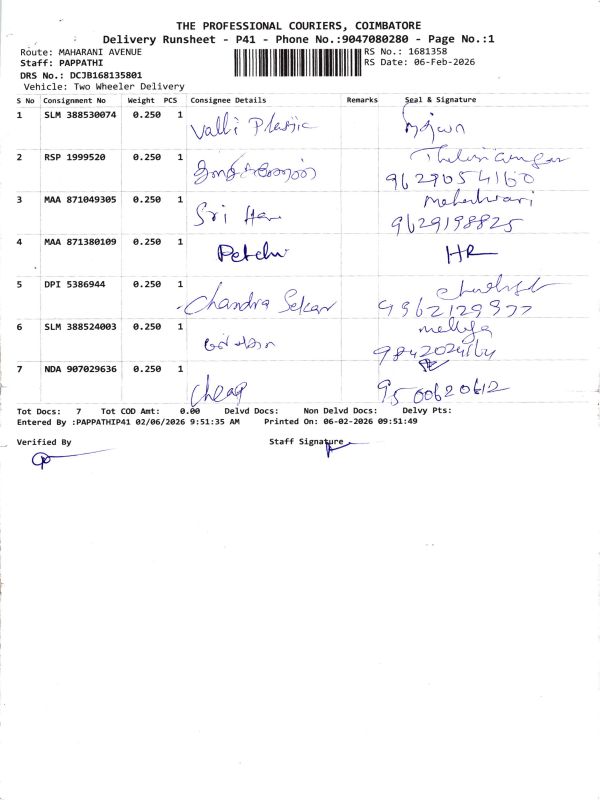 THE PROFESSIONAL COURIERS, COIMBATORE
Delivery Runsheet - P41 - Phone No.:9047080280 - Page No.:1
Route: MAHARANI AVENUE
RS No.: 1681358
Staff: PAPPATHI
RS Date: 06-Feb-2026
DRS No.: DCJB168135801
Vehicle: Two Wheeler Delivery
S No Consignment No Weight PCS Consignee Details Remarks Seal & Signature
1 SLM 388530074 0.250 1 Valli Plastic
2 RSP 1999520 0.250 1 9629054160
3 MAA 871049305 0.250 1 Sri Hari Maheshwari
9629198825
4 MAA 871380109 0.250 1 Petchi HR
5 DPI 5386944 0.250 1 Chandra Sekar
9362129377
6 SLM 388524003 0.250 1
7 NDA 907029636 0.250 1 Cheap 9500620612
Tot Docs: 7 Tot COD Amt: 0.00 Delvd Docs: Non Delvd Docs: Delvy Pts:
Entered By :PAPPATHIP41 02/06/2026 9:51:35 AM Printed On: 06-02-2026 09:51:49
Verified By Staff Signature